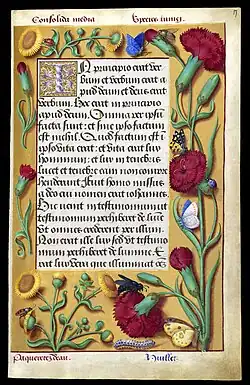 Consolida media Species iunigi.
In principio erat ver
bum et verbum erat a
pud deum et deus erat
verbum. Hoc erat in principio
apud deum. Omnia per ipsu
facta sunt: et sine ipso factum
est nichil. Quod factum est i
ipso vita erat: et vita erat lux
hominum: et lux in tenebris
lucet et tenebre eam non compre
henderunt. Fuit homo missus
a deo cui nomen erat iohannes.
Hic venit in testimonium ut
testimonium perhiberet de lumi
Ut omnes crederent per illum.
Non erat ille lux sed ut testimo
nium perhiberet de lumine. E
rat lux vera que illuminat o